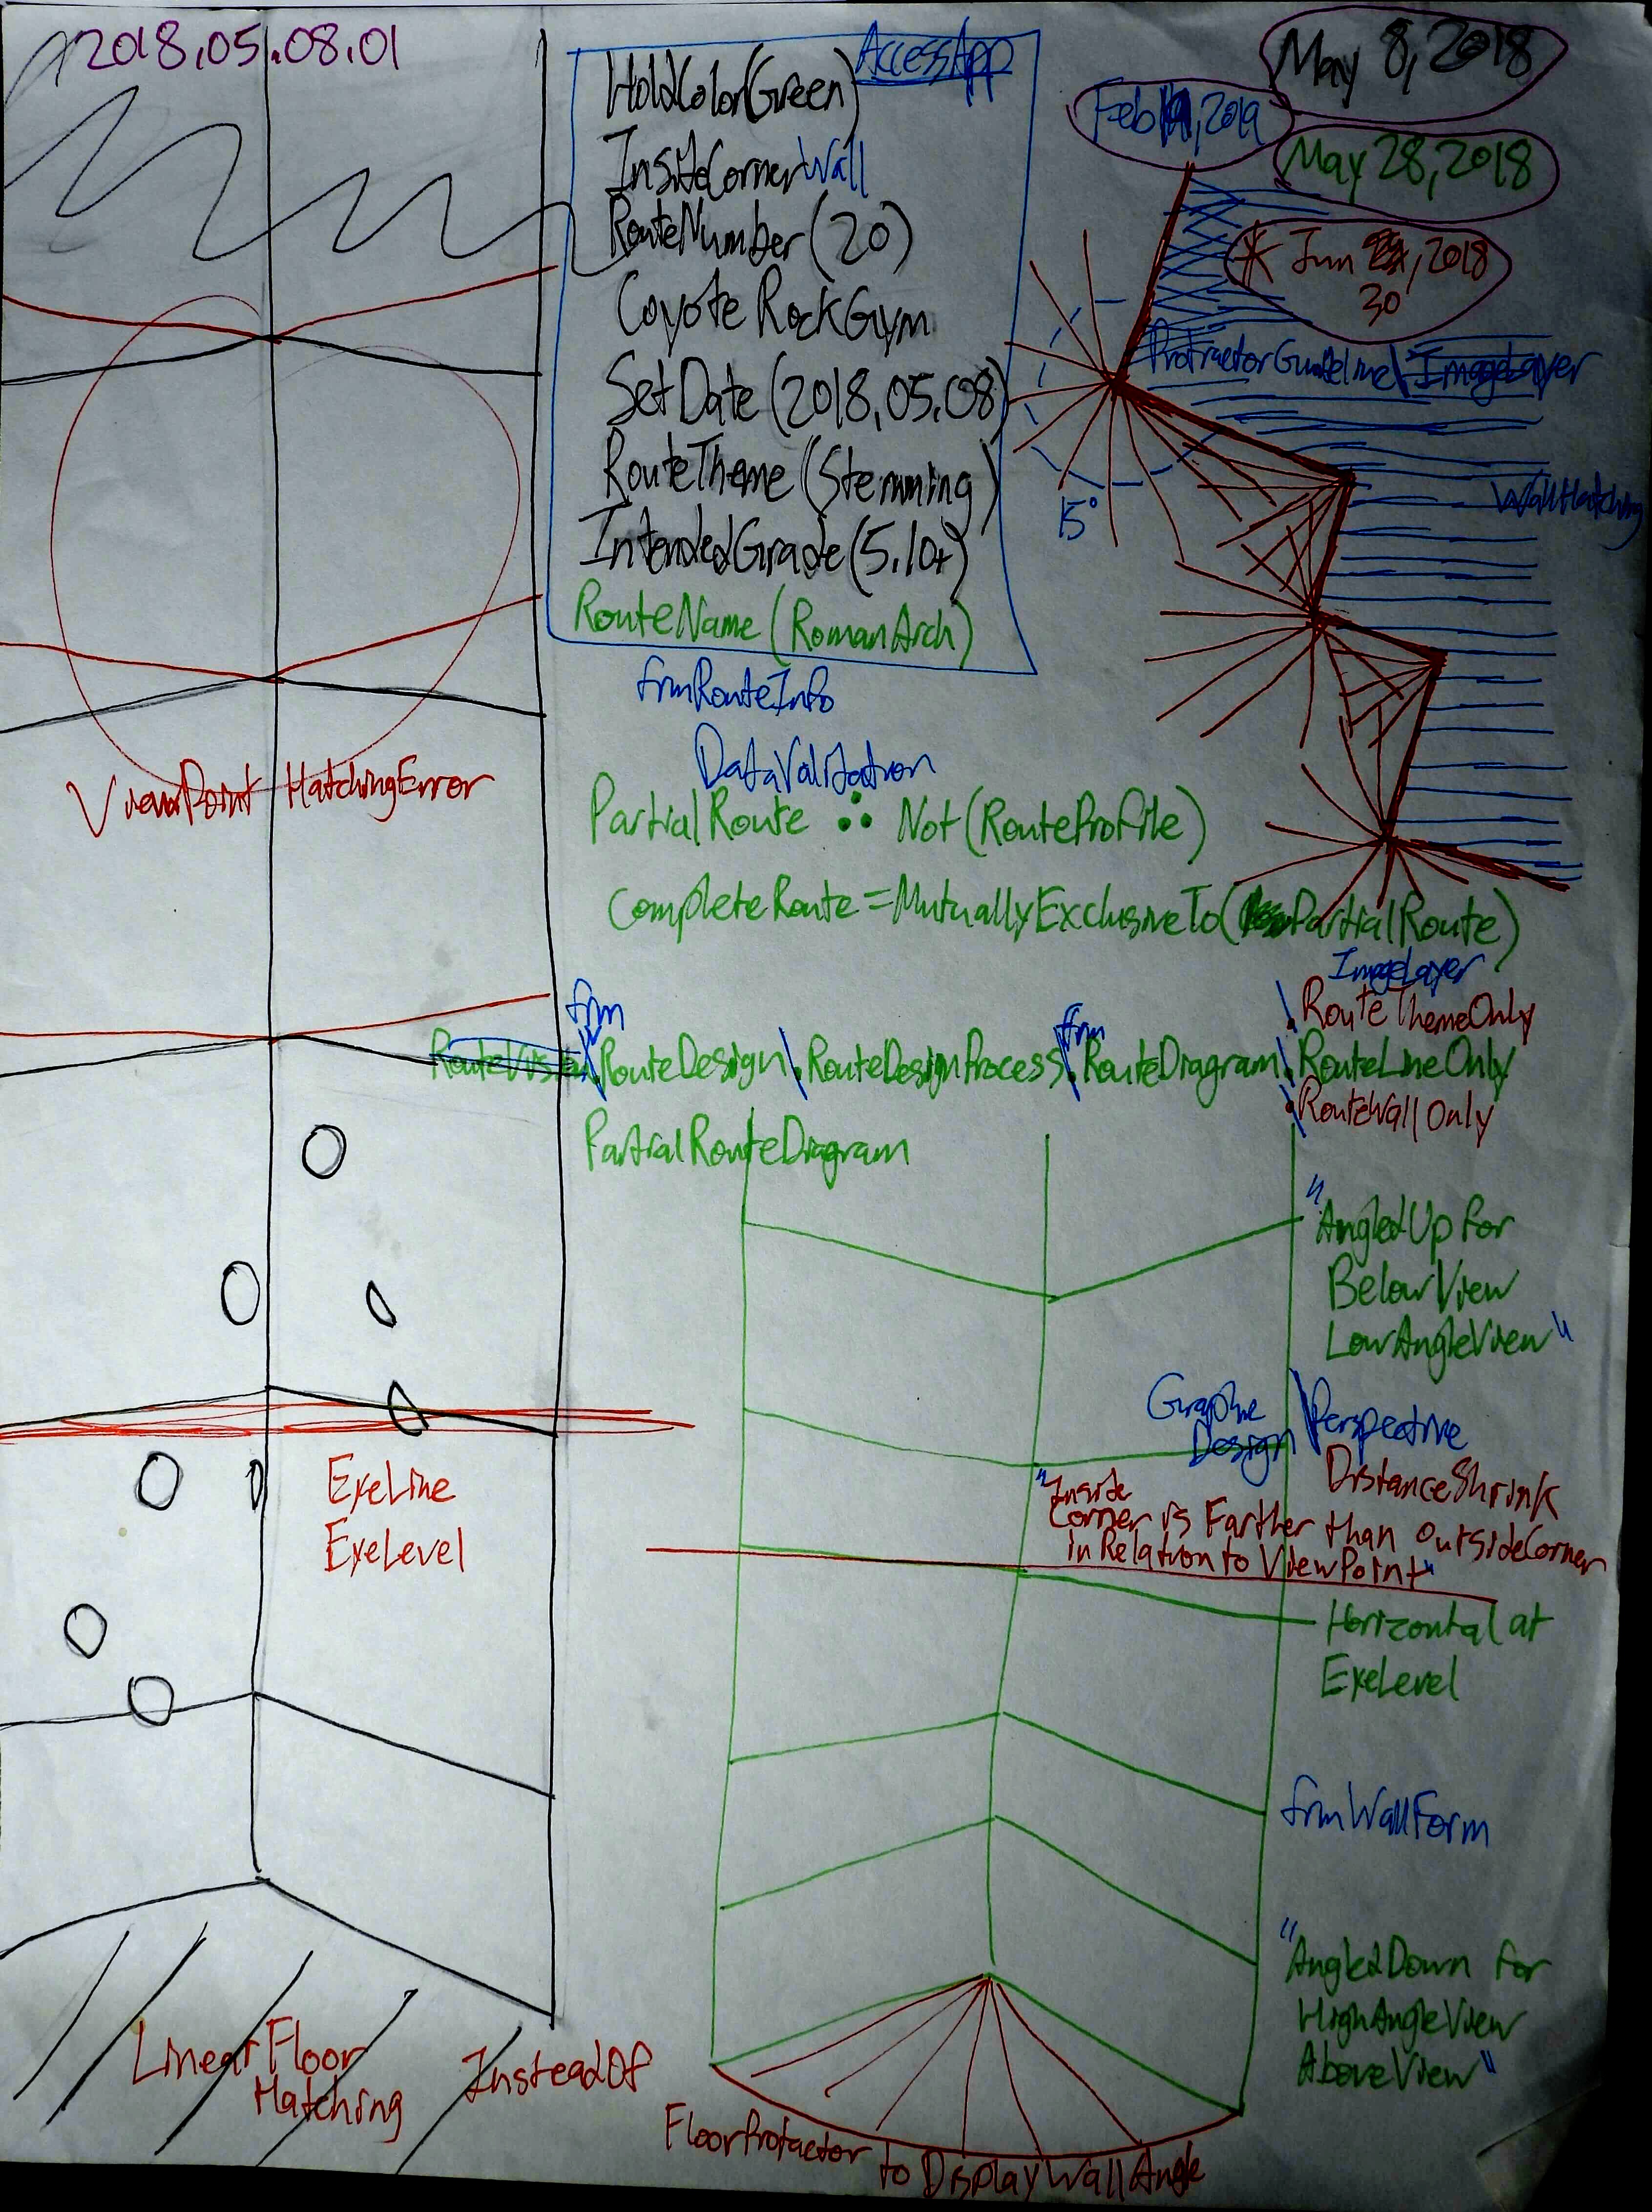 2018.05.08.01
AccessApp
HoldColor(Green)
InsideCornerWall
RouteNumber(20)
Coyote RockGym
SetDate(2018.05.08)
RouteTheme(Stemming)
IntendedGrade(5.10+)
RouteName(RomanArch)
frmRouteInfo
May 8, 2018
Feb , 2019
May 28, 2018
* Jun , 2018
30
ProtractorGuideline\ImageLayer
WallHatching
15°
ViewPoint HatchingError
DataValidation
PartialRoute ∴ Not(RouteProfile)
CompleteRoute = MutuallyExclusiveTo(PartialRoute)
ImageLayer
\.RouteThemeOnly
frm frm
\.RouteDesign\.RouteDesignProcess\.RouteDiagram\.RouteLineOnly
\.RouteWallOnly
PartialRouteDiagram
"AngledUp for
BelowView
LowAngleView"
Graphic
Design\Perspective
DistanceShrink
"Inside
Corner is Farther than OutsideCorner
in Relation to ViewPoint"
EyeLine
EyeLevel
Horizontal at
EyeLevel
frmWallForm
"AngledDown for
HighAngleView
AboveView"
LinearFloor
Hatching
InsteadOf
FloorProtractor to DisplayWallAngle